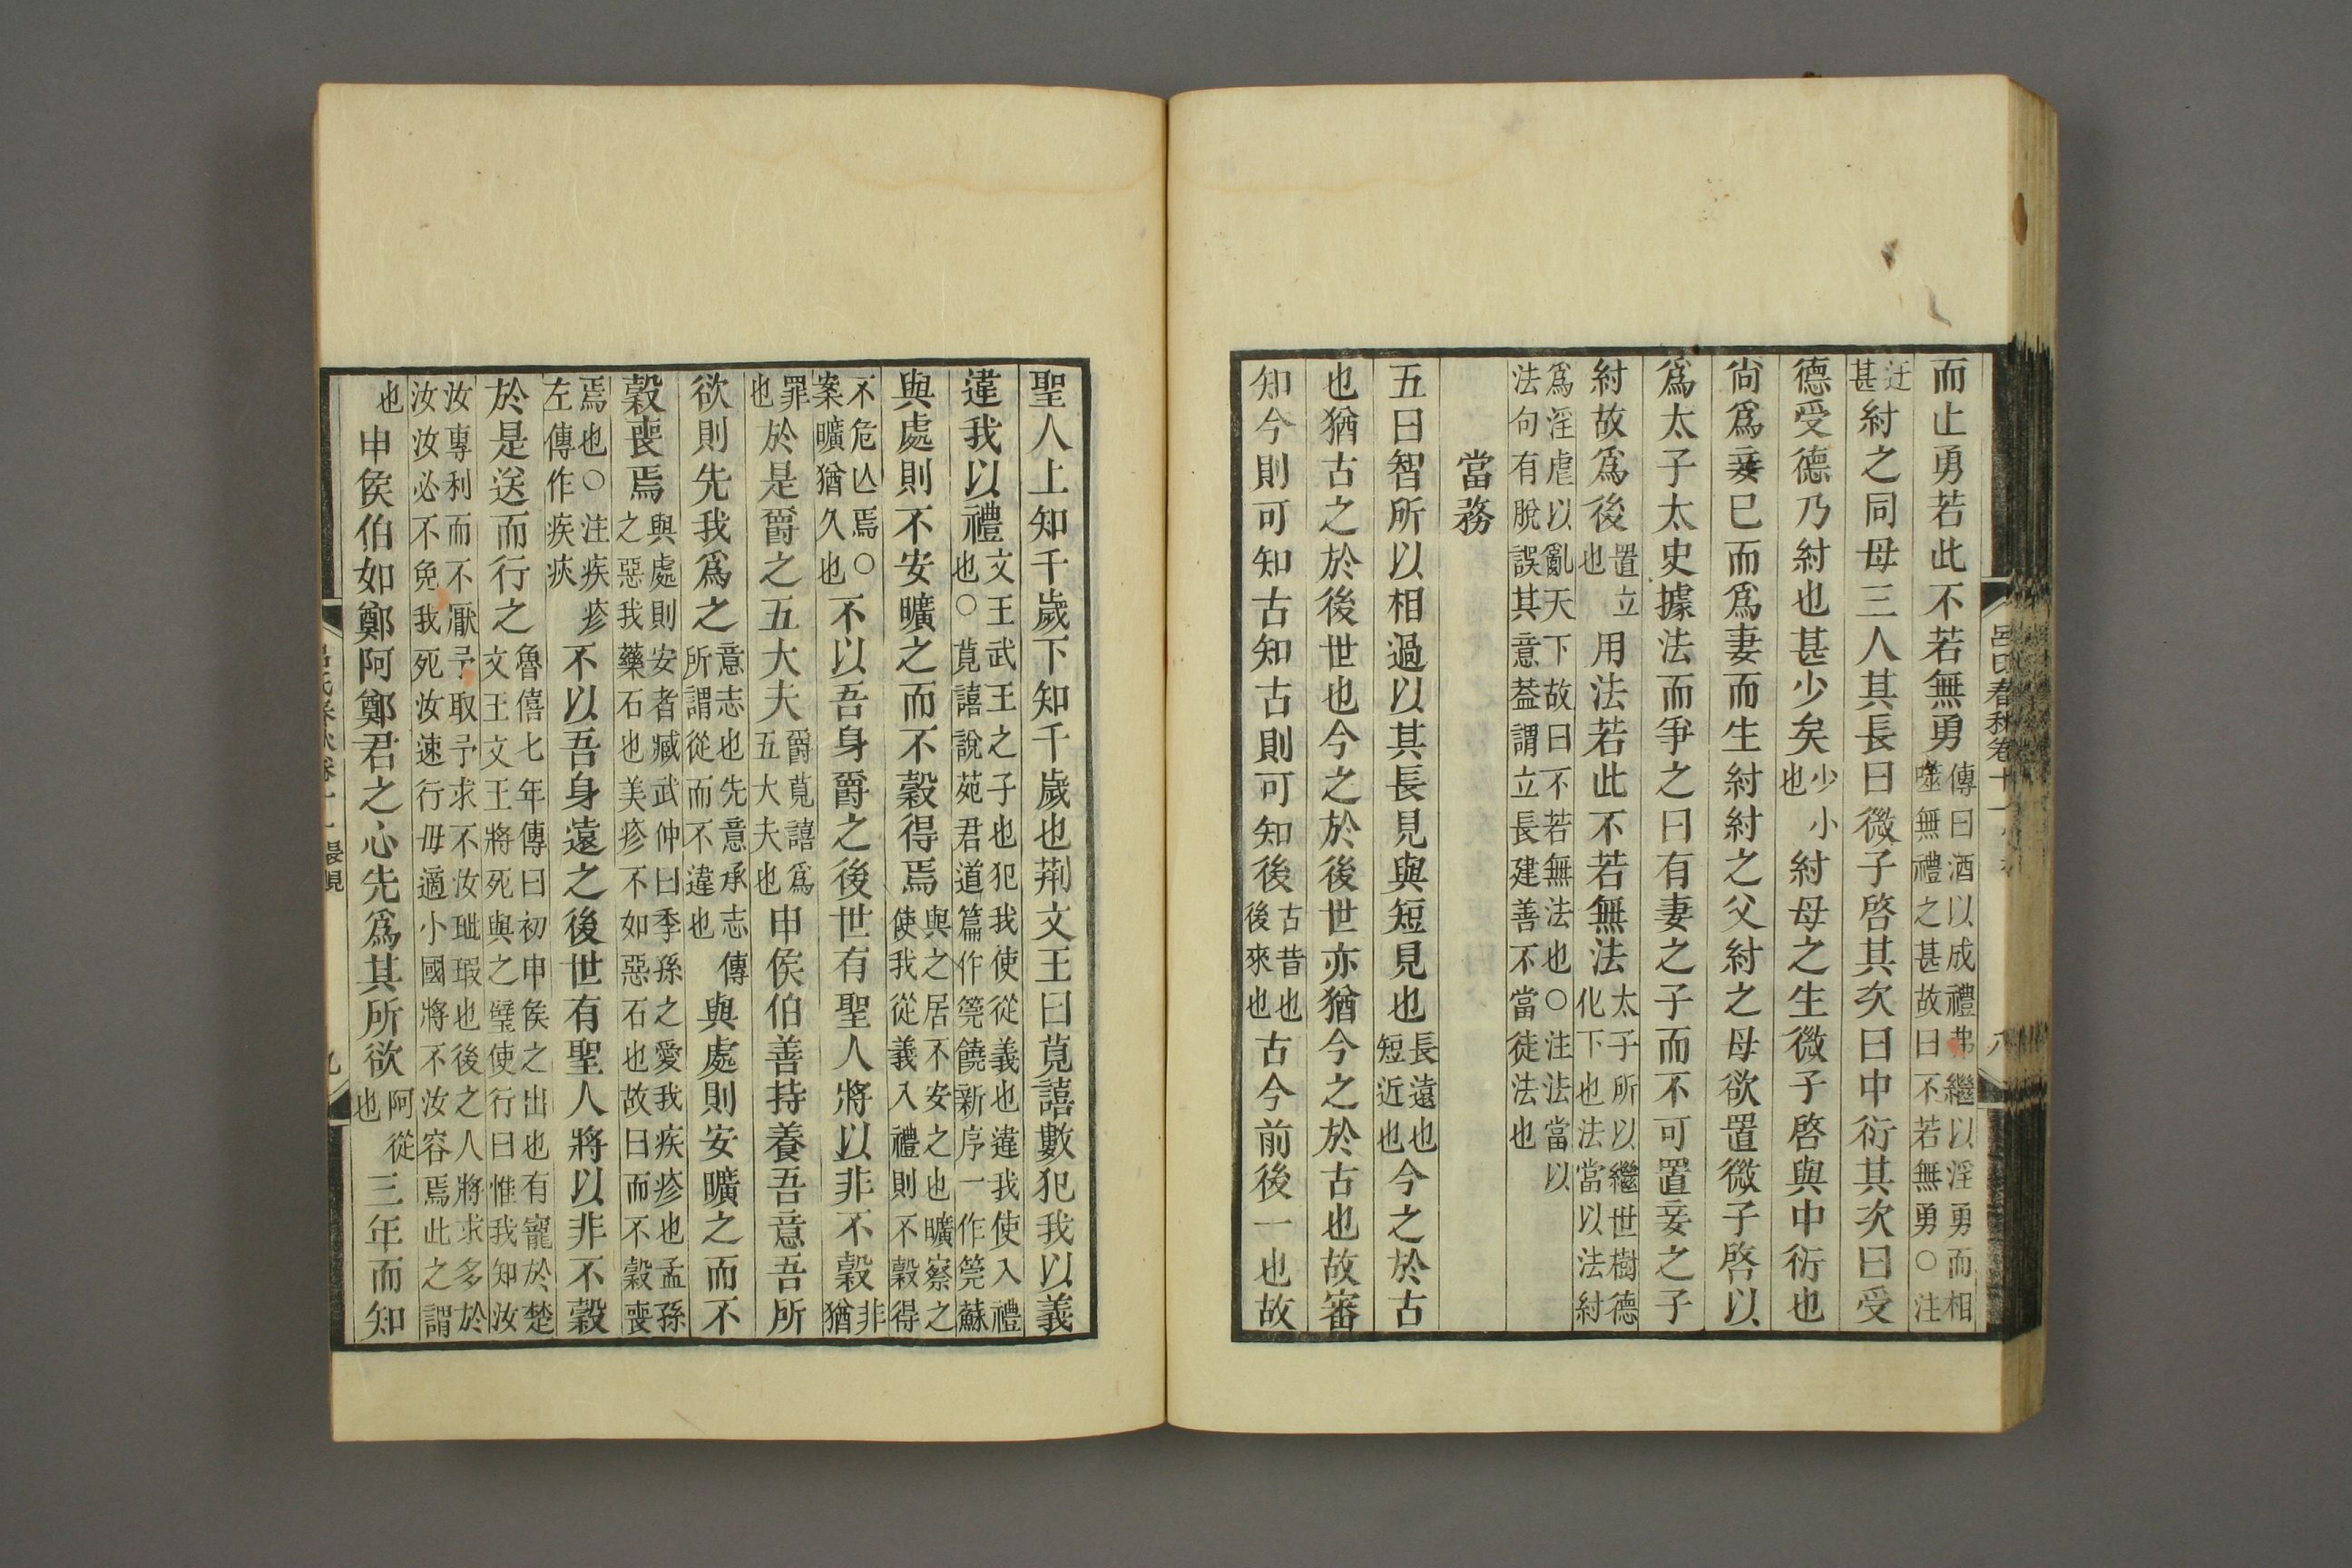 呂氏春秋卷十一
八
而止勇若此不若無勇傳曰酒以成禮弗繼以淫勇而相噬無禮之甚故曰不若無勇○注
迂甚紂之同母三人其長曰微子啓其次曰中衍其次曰受
德受德乃紂也甚少矣少小也紂母之生微子啓與中衍也
尚爲妾巳而爲妻而生紂紂之父紂之母欲置微子啓以
爲太子太史據法而爭之曰有妻之子而不可置妾之子
紂故爲後置立也用法若此不若無法太子所以繼世樹德化下也法當以法紂
爲淫虐以亂天下故曰不若無法也○注法當以法句有脫誤其意葢謂立長建善不當徒法也
當務
五曰智所以相過以其長見與短見也長遠也短近也今之於古
也猶古之於後世也今之於後世亦猶今之於古也故審
知今則可知古知古則可知後古昔也後來也古今前後一也故
聖人上知千歲下知千歲也荆文王曰莧譆數犯我以義
違我以禮文王武王之子也犯我使從義也違我使入禮也○莧譆說苑君道篇作筦饒新序一作筦蘇
與處則不安曠之而不榖得焉與之居不安之也曠察之使我從義入禮則不榖得
不危亾焉○案曠猶久也不以吾身爵之後世有聖人將以非不榖非猶
罪也於是爵之五大夫爵莧譆爲五大夫也申侯伯善持養吾意吾所
欲則先我爲之意志也先意承志傳所謂從而不違也與處則安曠之而不
榖喪焉與處則安者臧武仲曰季孫之愛我疾疹也孟孫之惡我藥石也美疹不如惡石也故曰而不榖喪
焉也○注疾疹左傳作疾疢不以吾身遠之後世有聖人將以非不榖
於是送而行之魯僖七年傳曰初申侯之出也有寵於楚文王文王將死與之璧使行曰惟我知汝
汝專利而不厭予取予求不汝玼瑕也後之人將求多於汝汝必不免我死汝速行毋適小國將不汝容焉此之謂
也申侯伯如鄭阿鄭君之心先爲其所欲阿從也三年而知